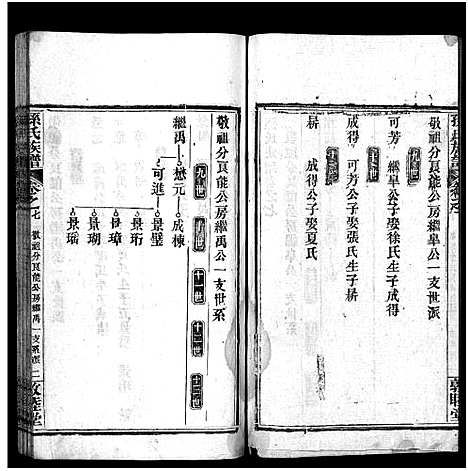 敬祖分良能公房繼皋公一支世派
九世
可芳　繼皋公子娶徐氏生子成得
十世
成得　可芳公子娶張氏生子耕
十一世
耕　成得公子娶夏氏
敦睦堂
敬祖分良能公房繼禹公一支世系
九世　十世　十一世　十二世　十三世
繼禹　懋元　成棟
可進　景璧
景珩
景璋
景瑚
景瑤
孫氏族譜
卷之七
敬祖分良能公房繼禹公一支系派　二　敦睦堂